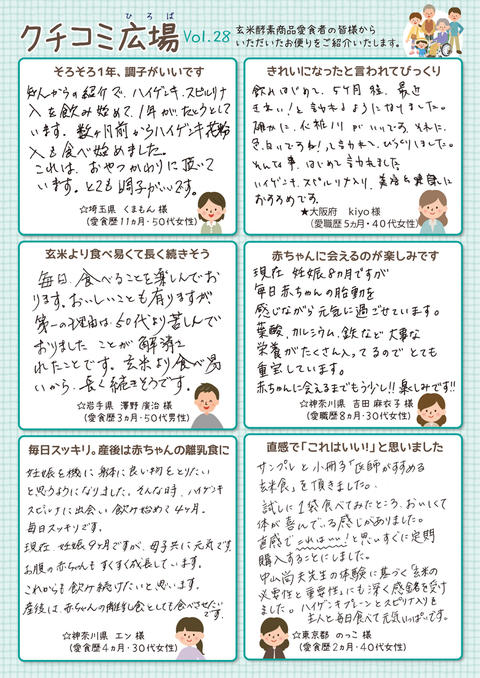 ひろば
クチコミ広場 Vol.28
玄米酵素商品愛食者の皆様から
いただいたお便りをご紹介いたします。
そろそろ1年、調子がいいです
知人からの紹介で、ハイゲンキ、スピルリナ
入を飲み始めて、1年がたとうとして
います。数ヶ月前からハイゲンキ花粉
入も食べ始めました。
これは、おやつがわりに頂いて
います。とても調子がいいです。
☆埼玉県 くまもん 様
(愛食歴11カ月・50代女性)
きれいになったと言われてびっくり
飲みはじめて、5ヶ月後、最近
きれい!と言われるようになりました。
確かに、化粧ノリがいいです。それに、
色白いですね!と言われて、びっくりしました。
そんな事、はじめて言われました。
ハイゲンキ、スピルリナ入り、美容と健康に
おすすめです。
★大阪府 kiyo 様
(愛職歴5カ月・40代女性)
玄米より食べ易くて長く続きそう
毎日、食べることを楽しんでお
ります。おいしいことも有りますが
第一の理由は、50代より苦しんで
おりました ことが解消さ
れたことです。玄米より食べ易
いから、長く続きそうです。
☆岩手県 澤野 廣治 様
(愛食歴3カ月・50代男性)
赤ちゃんに会えるのが楽しみです
現在 妊娠8カ月ですが
毎日赤ちゃんの胎動を
感じながら元気に過ごせています。
葉酸、カルシウム、鉄など大事な
栄養がたくさん入ってるのでとても
重宝しています。
赤ちゃんに会えるまでもう少し!!楽しみです!!
☆神奈川県 吉田 麻衣子 様
(愛職歴8カ月・30代女性)
毎日スッキリ。産後は赤ちゃんの離乳食に
妊娠を機に、身体に良い物をとりたい
と思うようになりました。そんな時、ハイゲンキ
スピルリナに出会い 飲み始めて4ヶ月。
毎日スッキリです。
現在、妊娠9ヶ月ですが、母子共に元気です。
お腹の赤ちゃんもすくすく成長しています。
これからも飲み続けたいと思います。
産後は、赤ちゃんの離乳食としても食べさせたい
です。
☆神奈川県 エン 様
(愛食歴4カ月・30代女性)
直感で「これはいい!」と思いました
サンプルと小冊子「医師がすすめる
玄米食」を頂きました。
試しに1袋食べてみたところ、おいしくて
体が喜んでいる感じがありました。
直感で これはいい!と思いすぐに定期
購入することにしました。
中山尚夫先生の体験に基づく「玄米の
必要性と重要性」にも深く感銘を受け
ました。ハイゲンキグリーンとスピルリナ入りを
主人と毎日食べて元気いっぱいです。
☆東京都 のっこ 様
(愛食歴2カ月・40代女性)